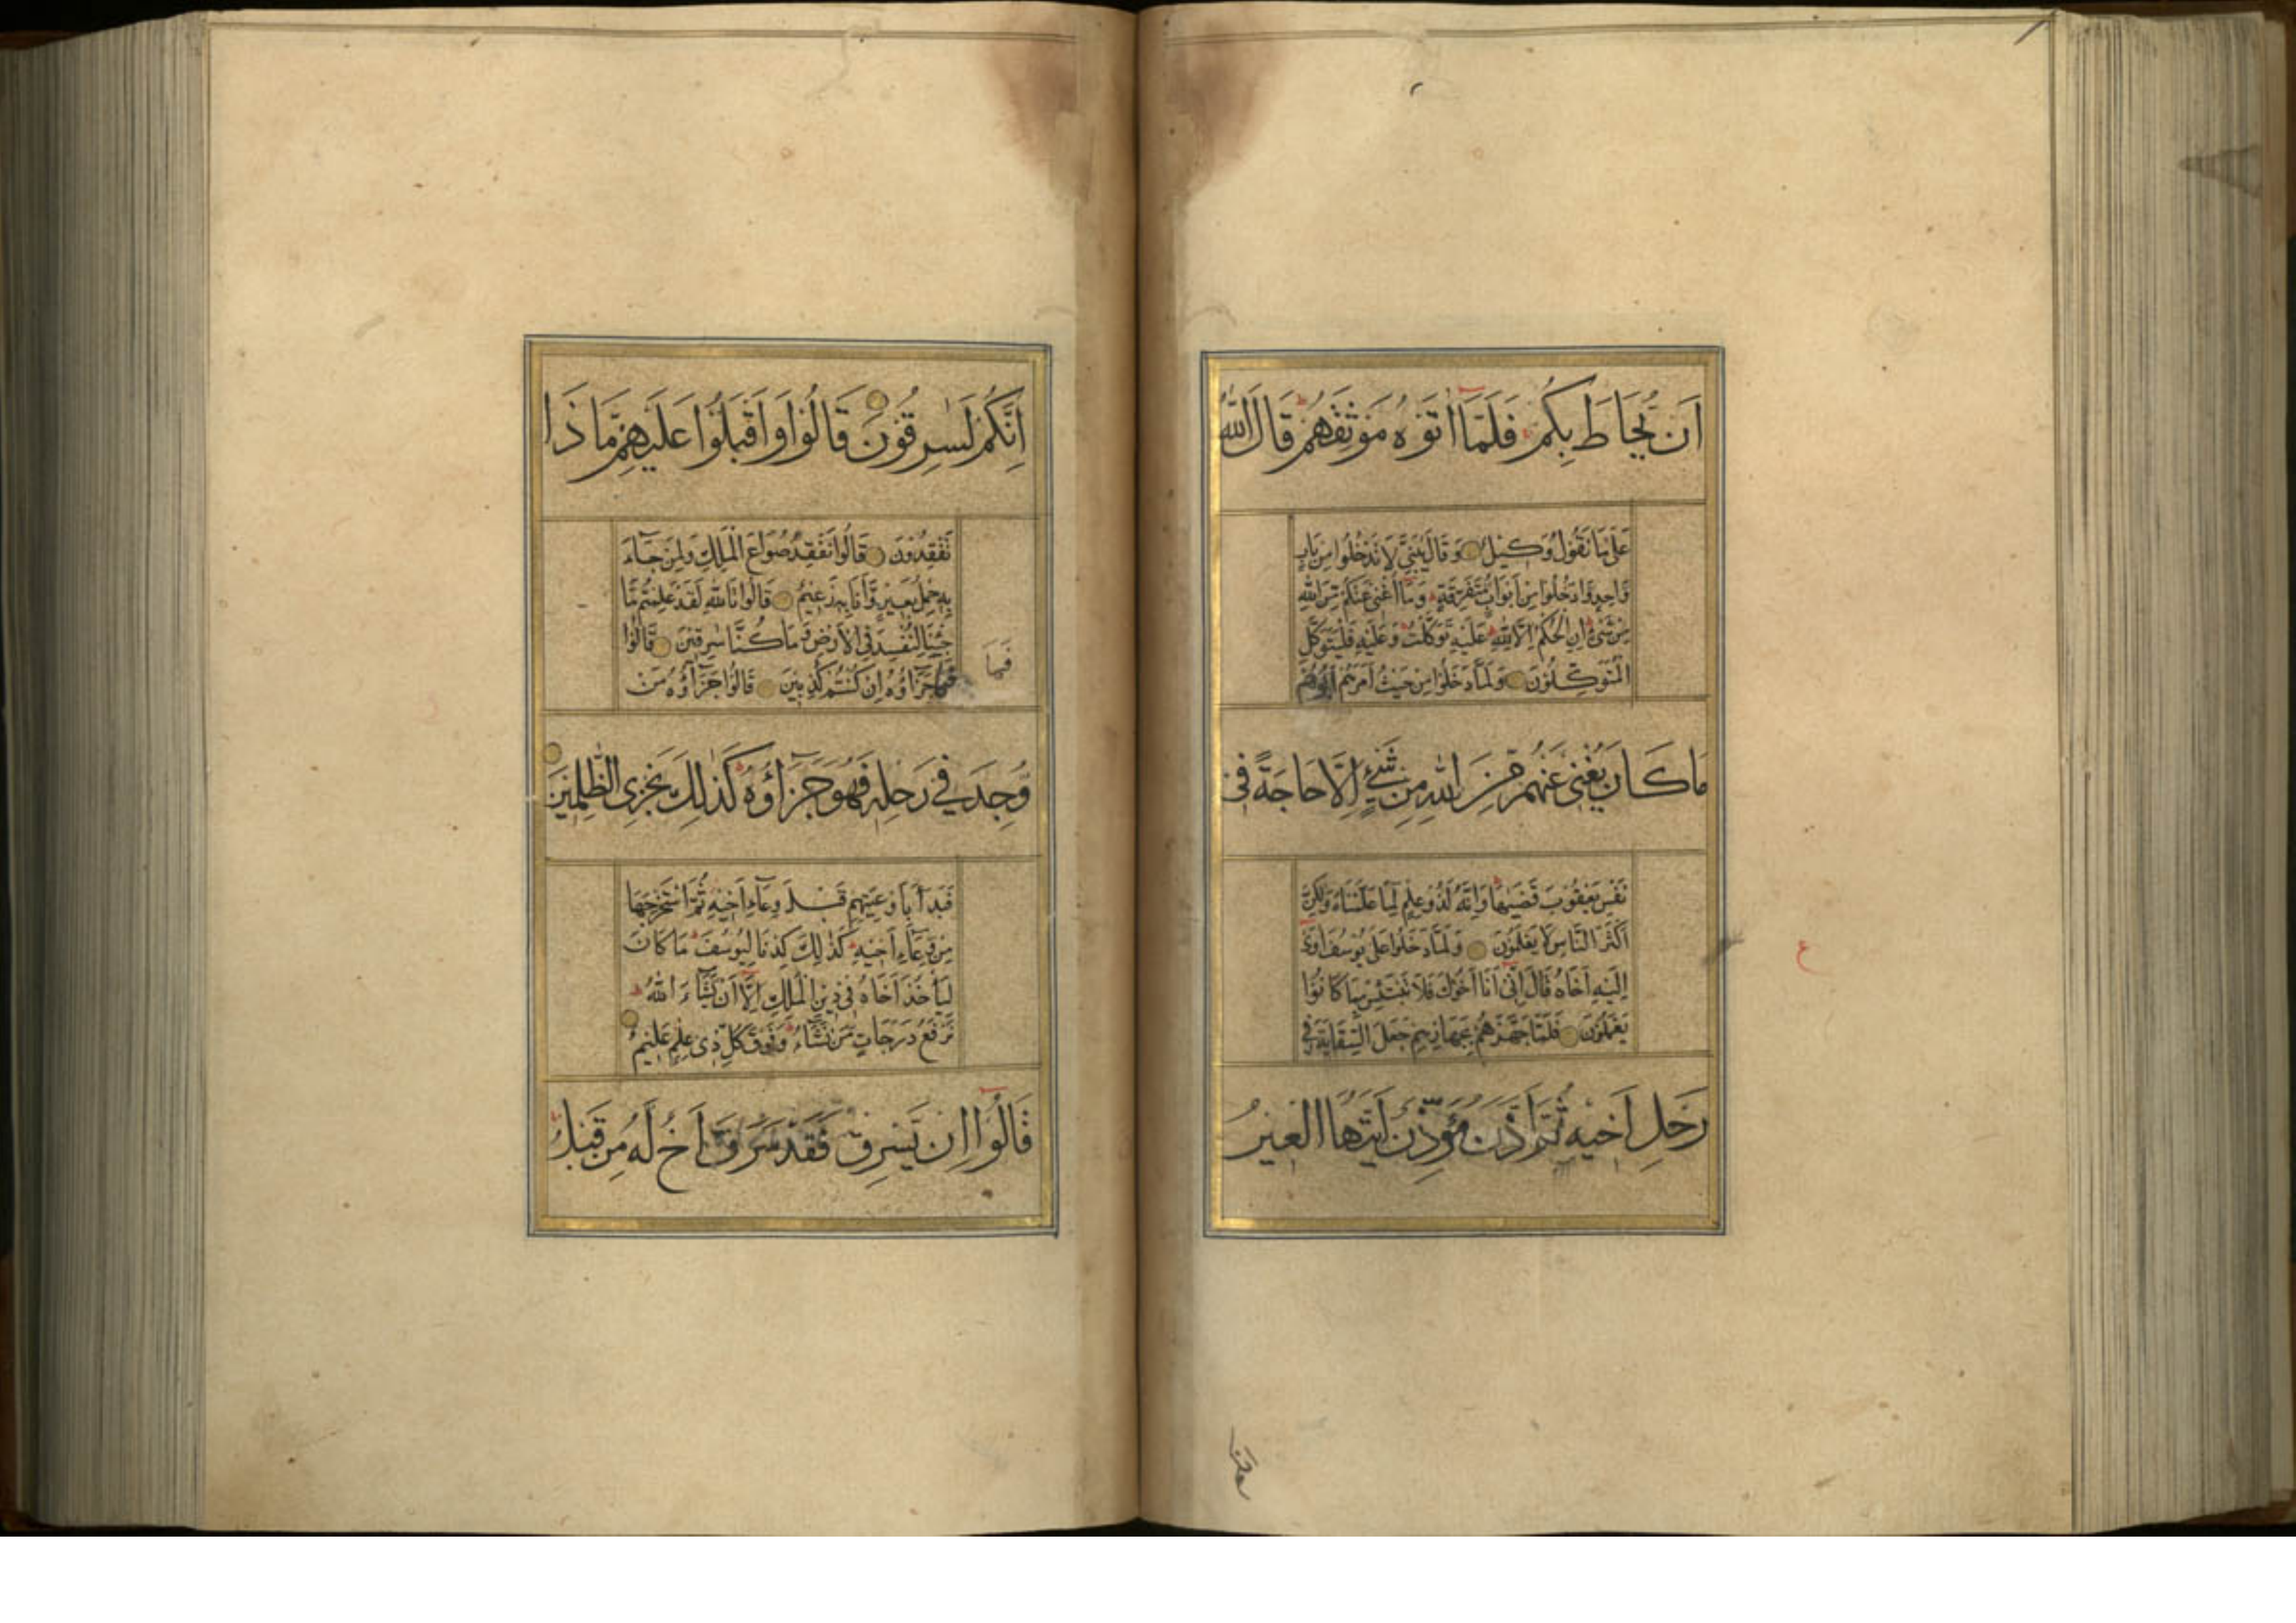 اَنْ يُحَاطَ بِكُمْ فَلَمَّا اٰتَوْهُ مَوْثِقَهُمْ قَالَ اللّٰهُ
عَلٰى مَا نَقُوْلُ وَكِيْلٌ وَقَالَ يٰبَنِيَّ لَا تَدْخُلُوْا مِنْ بَابٍ
وَّاحِدٍ وَّادْخُلُوْا مِنْ اَبْوَابٍ مُّتَفَرِّقَةٍ وَمَا اُغْنِيْ عَنْكُمْ مِّنَ اللّٰهِ
مِنْ شَيْءٍ اِنِ الْحُكْمُ اِلَّا لِلّٰهِ عَلَيْهِ تَوَكَّلْتُ وَعَلَيْهِ فَلْيَتَوَكَّلِ
الْمُتَوَكِّلُوْنَ وَلَمَّا دَخَلُوْا مِنْ حَيْثُ اَمَرَهُمْ اَبُوْهُمْ
مَا كَانَ يُغْنِيْ عَنْهُمْ مِّنَ اللّٰهِ مِنْ شَيْءٍ اِلَّا حَاجَةً فِيْ
نَفْسِ يَعْقُوْبَ قَضٰىهَا وَاِنَّهٗ لَذُوْ عِلْمٍ لِّمَا عَلَّمْنَاهُ وَلٰكِنَّ
اَكْثَرَ النَّاسِ لَا يَعْلَمُوْنَ وَلَمَّا دَخَلُوْا عَلٰى يُوْسُفَ اٰوٰى
اِلَيْهِ اَخَاهُ قَالَ اِنِّيْ اَنَا اَخُوْكَ فَلَا تَبْتَئِسْ بِمَا كَانُوْا
يَعْمَلُوْنَ فَلَمَّا جَهَّزَهُمْ بِجَهَازِهِمْ جَعَلَ السِّقَايَةَ فِيْ
رَحْلِ اَخِيْهِ ثُمَّ اَذَّنَ مُؤَذِّنٌ اَيَّتُهَا الْعِيْرُ
اِنَّكُمْ لَسٰرِقُوْنَ قَالُوْا وَاَقْبَلُوْا عَلَيْهِمْ مَّاذَا
تَفْقِدُوْنَ قَالُوْا نَفْقِدُ صُوَاعَ الْمَلِكِ وَلِمَنْ جَآءَ
بِهٖ حِمْلُ بَعِيْرٍ وَّاَنَا بِهٖ زَعِيْمٌ قَالُوْا تَاللّٰهِ لَقَدْ عَلِمْتُمْ مَّا
جِئْنَا لِنُفْسِدَ فِي الْاَرْضِ وَمَا كُنَّا سٰرِقِيْنَ قَالُوْا
فَمَا
فَمَا جَزَآؤُهٗ اِنْ كُنْتُمْ كٰذِبِيْنَ قَالُوْا جَزَآؤُهٗ مَنْ
وُّجِدَ فِيْ رَحْلِهٖ فَهُوَ جَزَآؤُهٗ كَذٰلِكَ نَجْزِي الظّٰلِمِيْنَ
فَبَدَاَ بِاَوْعِيَتِهِمْ قَبْلَ وِعَآءِ اَخِيْهِ ثُمَّ اسْتَخْرَجَهَا
مِنْ وِعَآءِ اَخِيْهِ كَذٰلِكَ كِدْنَا لِيُوْسُفَ مَا كَانَ
لِيَاْخُذَ اَخَاهُ فِيْ دِيْنِ الْمَلِكِ اِلَّا اَنْ يَّشَآءَ اللّٰهُ
نَرْفَعُ دَرَجَاتٍ مَّنْ نَّشَآءُ وَفَوْقَ كُلِّ ذِيْ عِلْمٍ عَلِيْمٌ
قَالُوْا اِنْ يَّسْرِقْ فَقَدْ سَرَقَ اَخٌ لَّهٗ مِنْ قَبْلُ